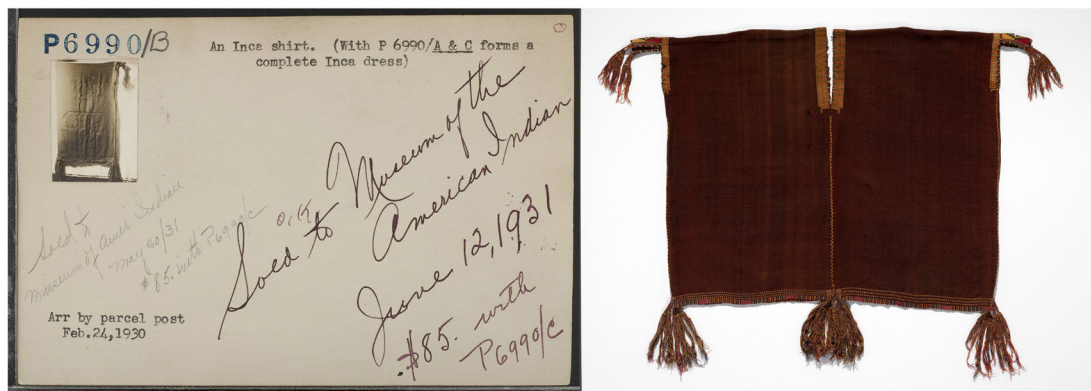 P6990/B
An Inca shirt. (With P 6990/A & C forms a
complete Inca dress)
Sold to Museum of the
American Indian
June 12, 1931
$85. with
P6990/C
O.K.
Sold to
Museum of Amer Indian
May 20/31
$85. with P6990/C
Arr by parcel post
Feb.24,1930